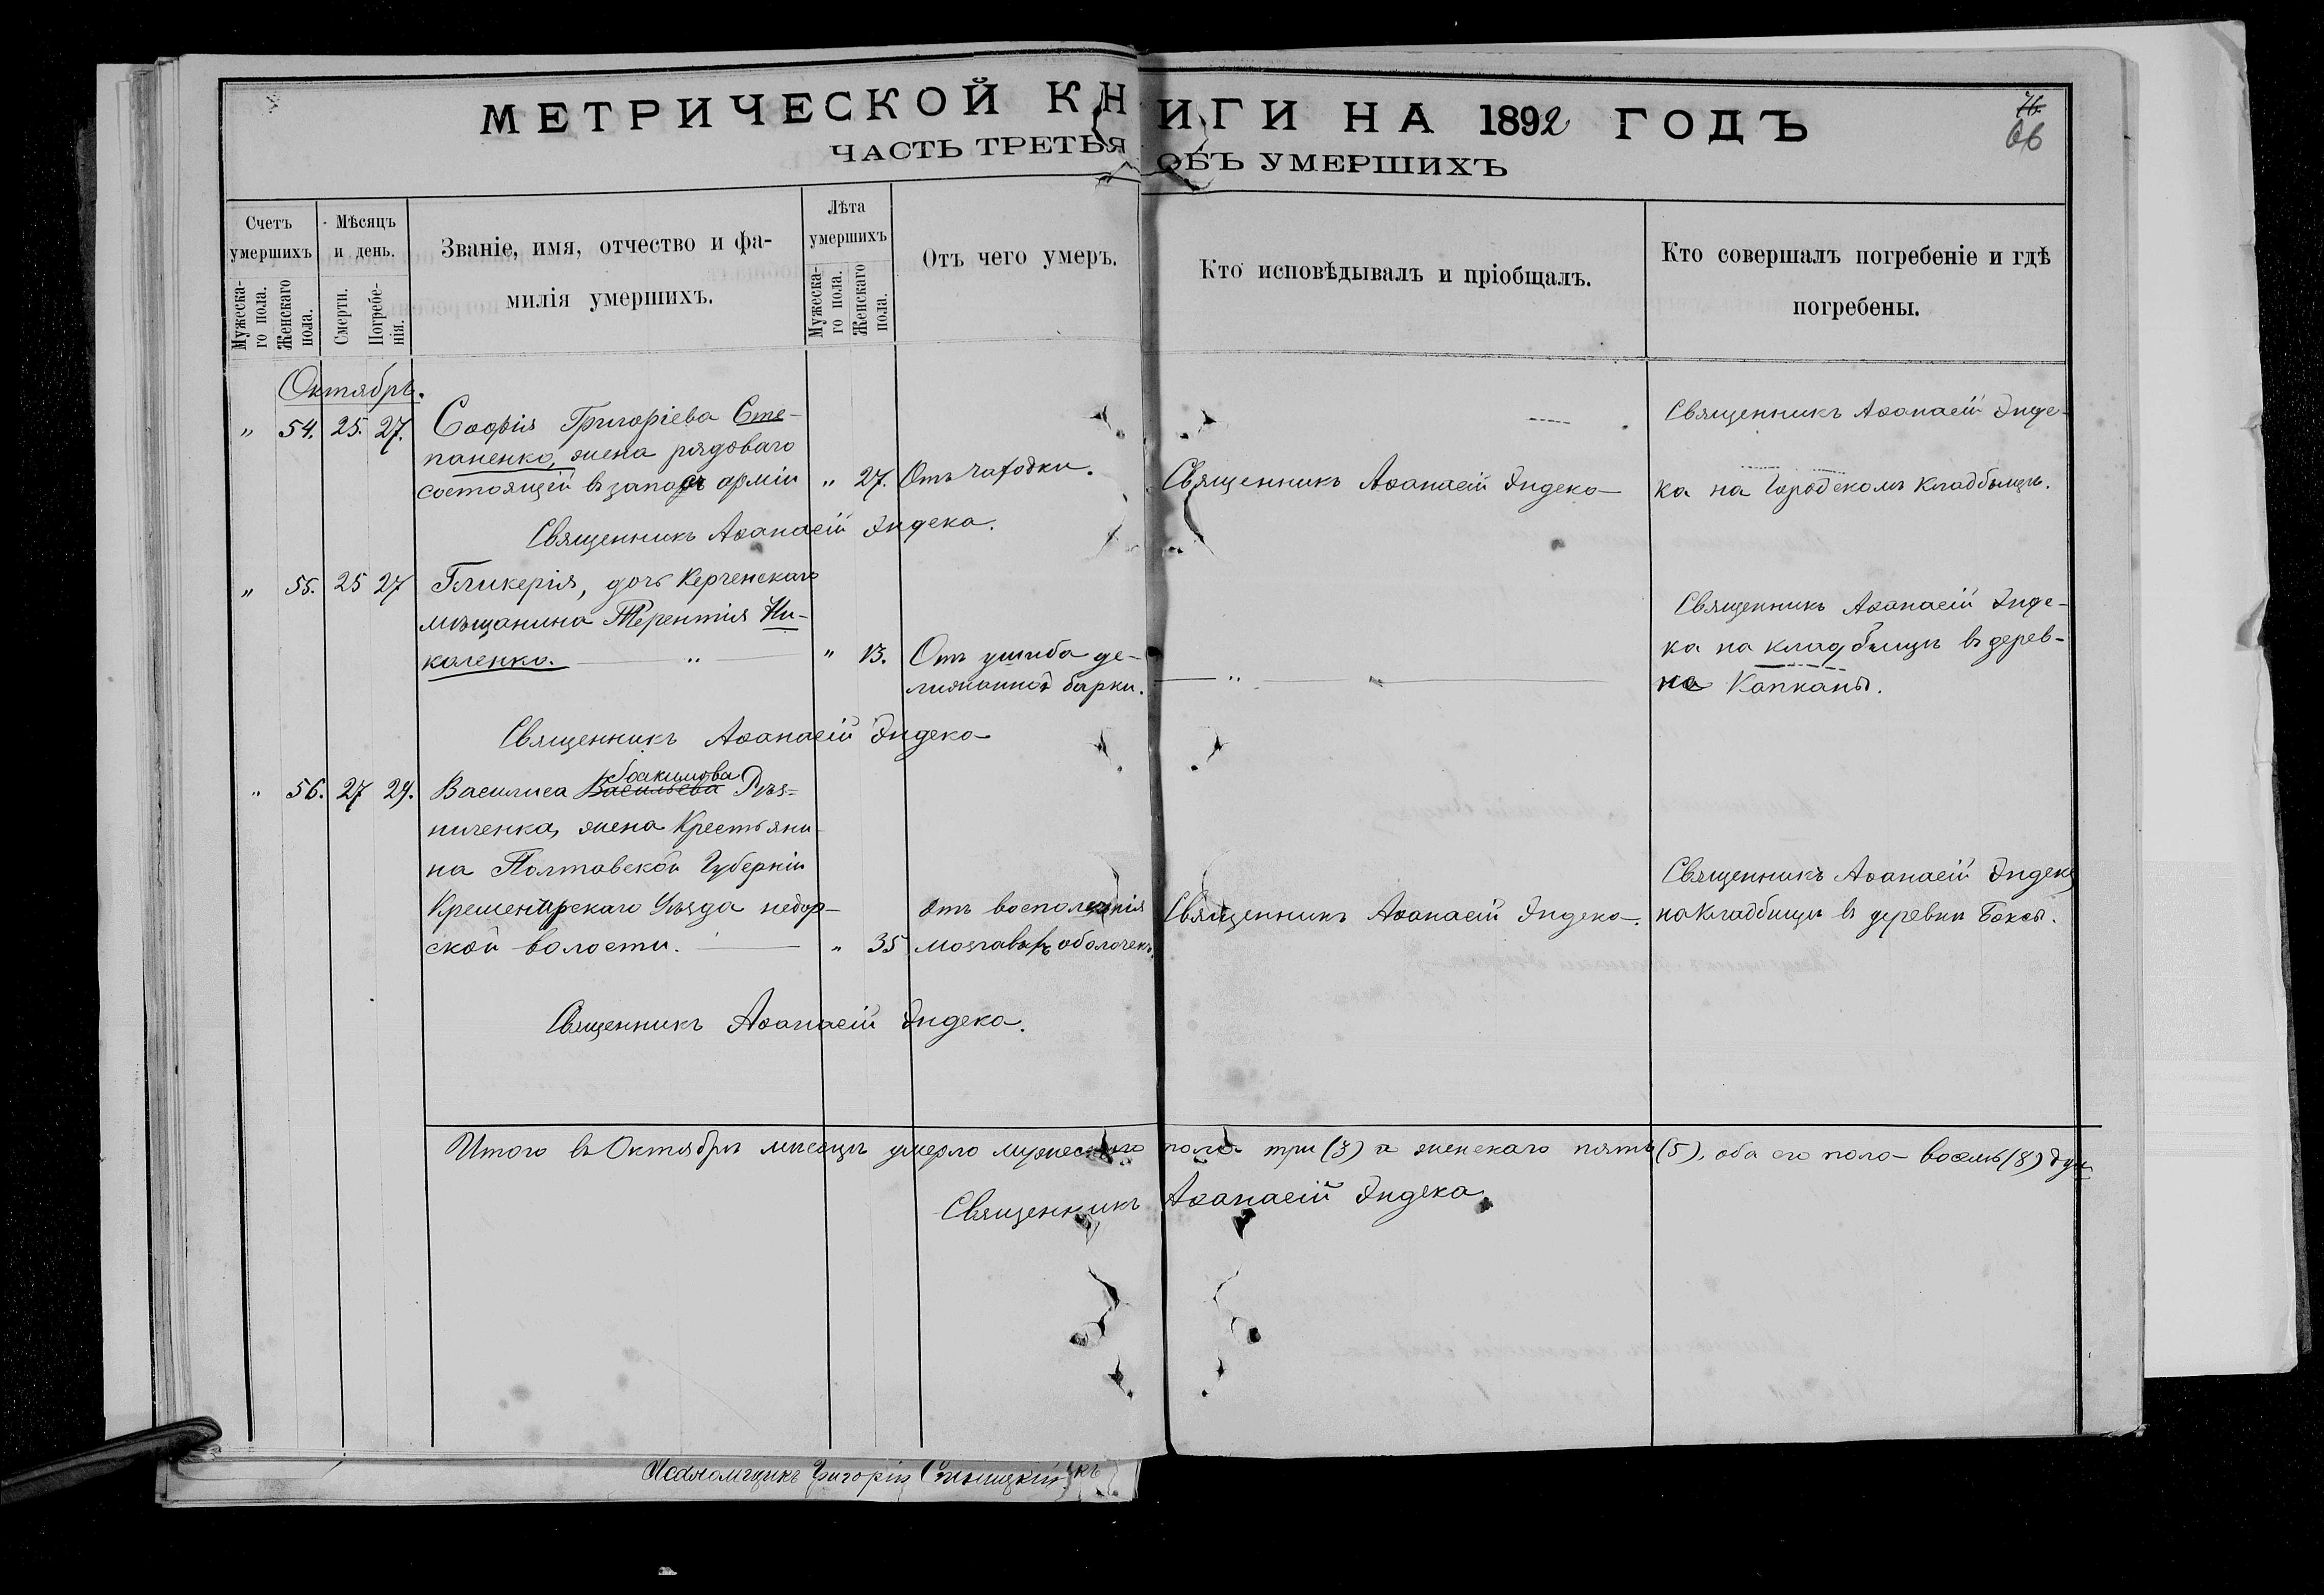 МЕТРИЧЕСКОЙ КНИГИ НА 1892 ГОДЪ
ЧАСТЬ ТРЕТЬЯ ОБЪ УМЕРШИХЪ
66
Счетъ умершихъ
Мужеска-го пола.
Женскаго пола.
Мѣсяцъ и день.
Смерти.
Погребе-нія.
Званіе, имя, отчество и фа-
милія умершихъ.
Лѣта умершихъ
Мужеска-го пола.
Женскаго пола.
Отъ чего умеръ.
Кто исповѣдывалъ и пріобщалъ.
Кто совершалъ погребеніе и гдѣ
погребены.
Октябрь.
" 54. 25. 27. Софія Григоріева Сте-
паненко, жена рядоваго
состоящій въ запасѣ арміи " 27. Отъ чахотки. Священникъ Аѳанасій Эндека
Священникъ Аѳанасій Энде-
ка на Городскомъ кладбищѣ.
Священникъ Аѳанасій Эндека.
" 55. 25 27 Гликерія, дочь Керченскаго
мѣщанина Терентія Ни-
коленко. " " 13. Отъ ушиба де-
барки.
Священникъ Аѳанасій Энде-
ка на кладбищѣ въ дерев-
не Капканы.
Священникъ Аѳанасій Эндека
" 56. 27 29. Василиса Васильева Іоакимова Рѣз-
ниченка, жена Крестьяни-
на Полтавской Губерніи
Кременчугскаго Уѣзда
ской волости. " 35 Отъ воспаленія
мозговыхъ оболочекъ.
Священникъ Аѳанасій Эндека.
Священникъ Аѳанасій Эндека
на кладбищѣ въ деревни Баксы.
Священникъ Аѳанасій Эндека.
Итого въ Октябрѣ мѣсяцѣ умерло мужескаго пола три (3) а женскаго пять (5), оба его пола восемь (8) душ
Священникъ Аѳанасій Эндека
Псаломщикъ Григорій